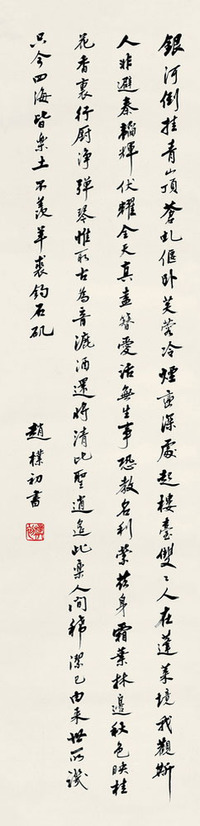 銀河倒挂青山頂蒼虬偃卧芙蓉冷煙重深處起樓臺雙〻人在蓬萊境我觀斯
人非避秦韜輝伏耀全天真盍簪愛話無生事恐教名利縈茲身霜葉林邊秋色映桂
花香裏行廚净彈琴惟取古為音漉酒還將清比聖逍遙此樂人間稀潔己由来世所譏
只今四海皆樂土不羨羊裘釣石磯
趙樸初書